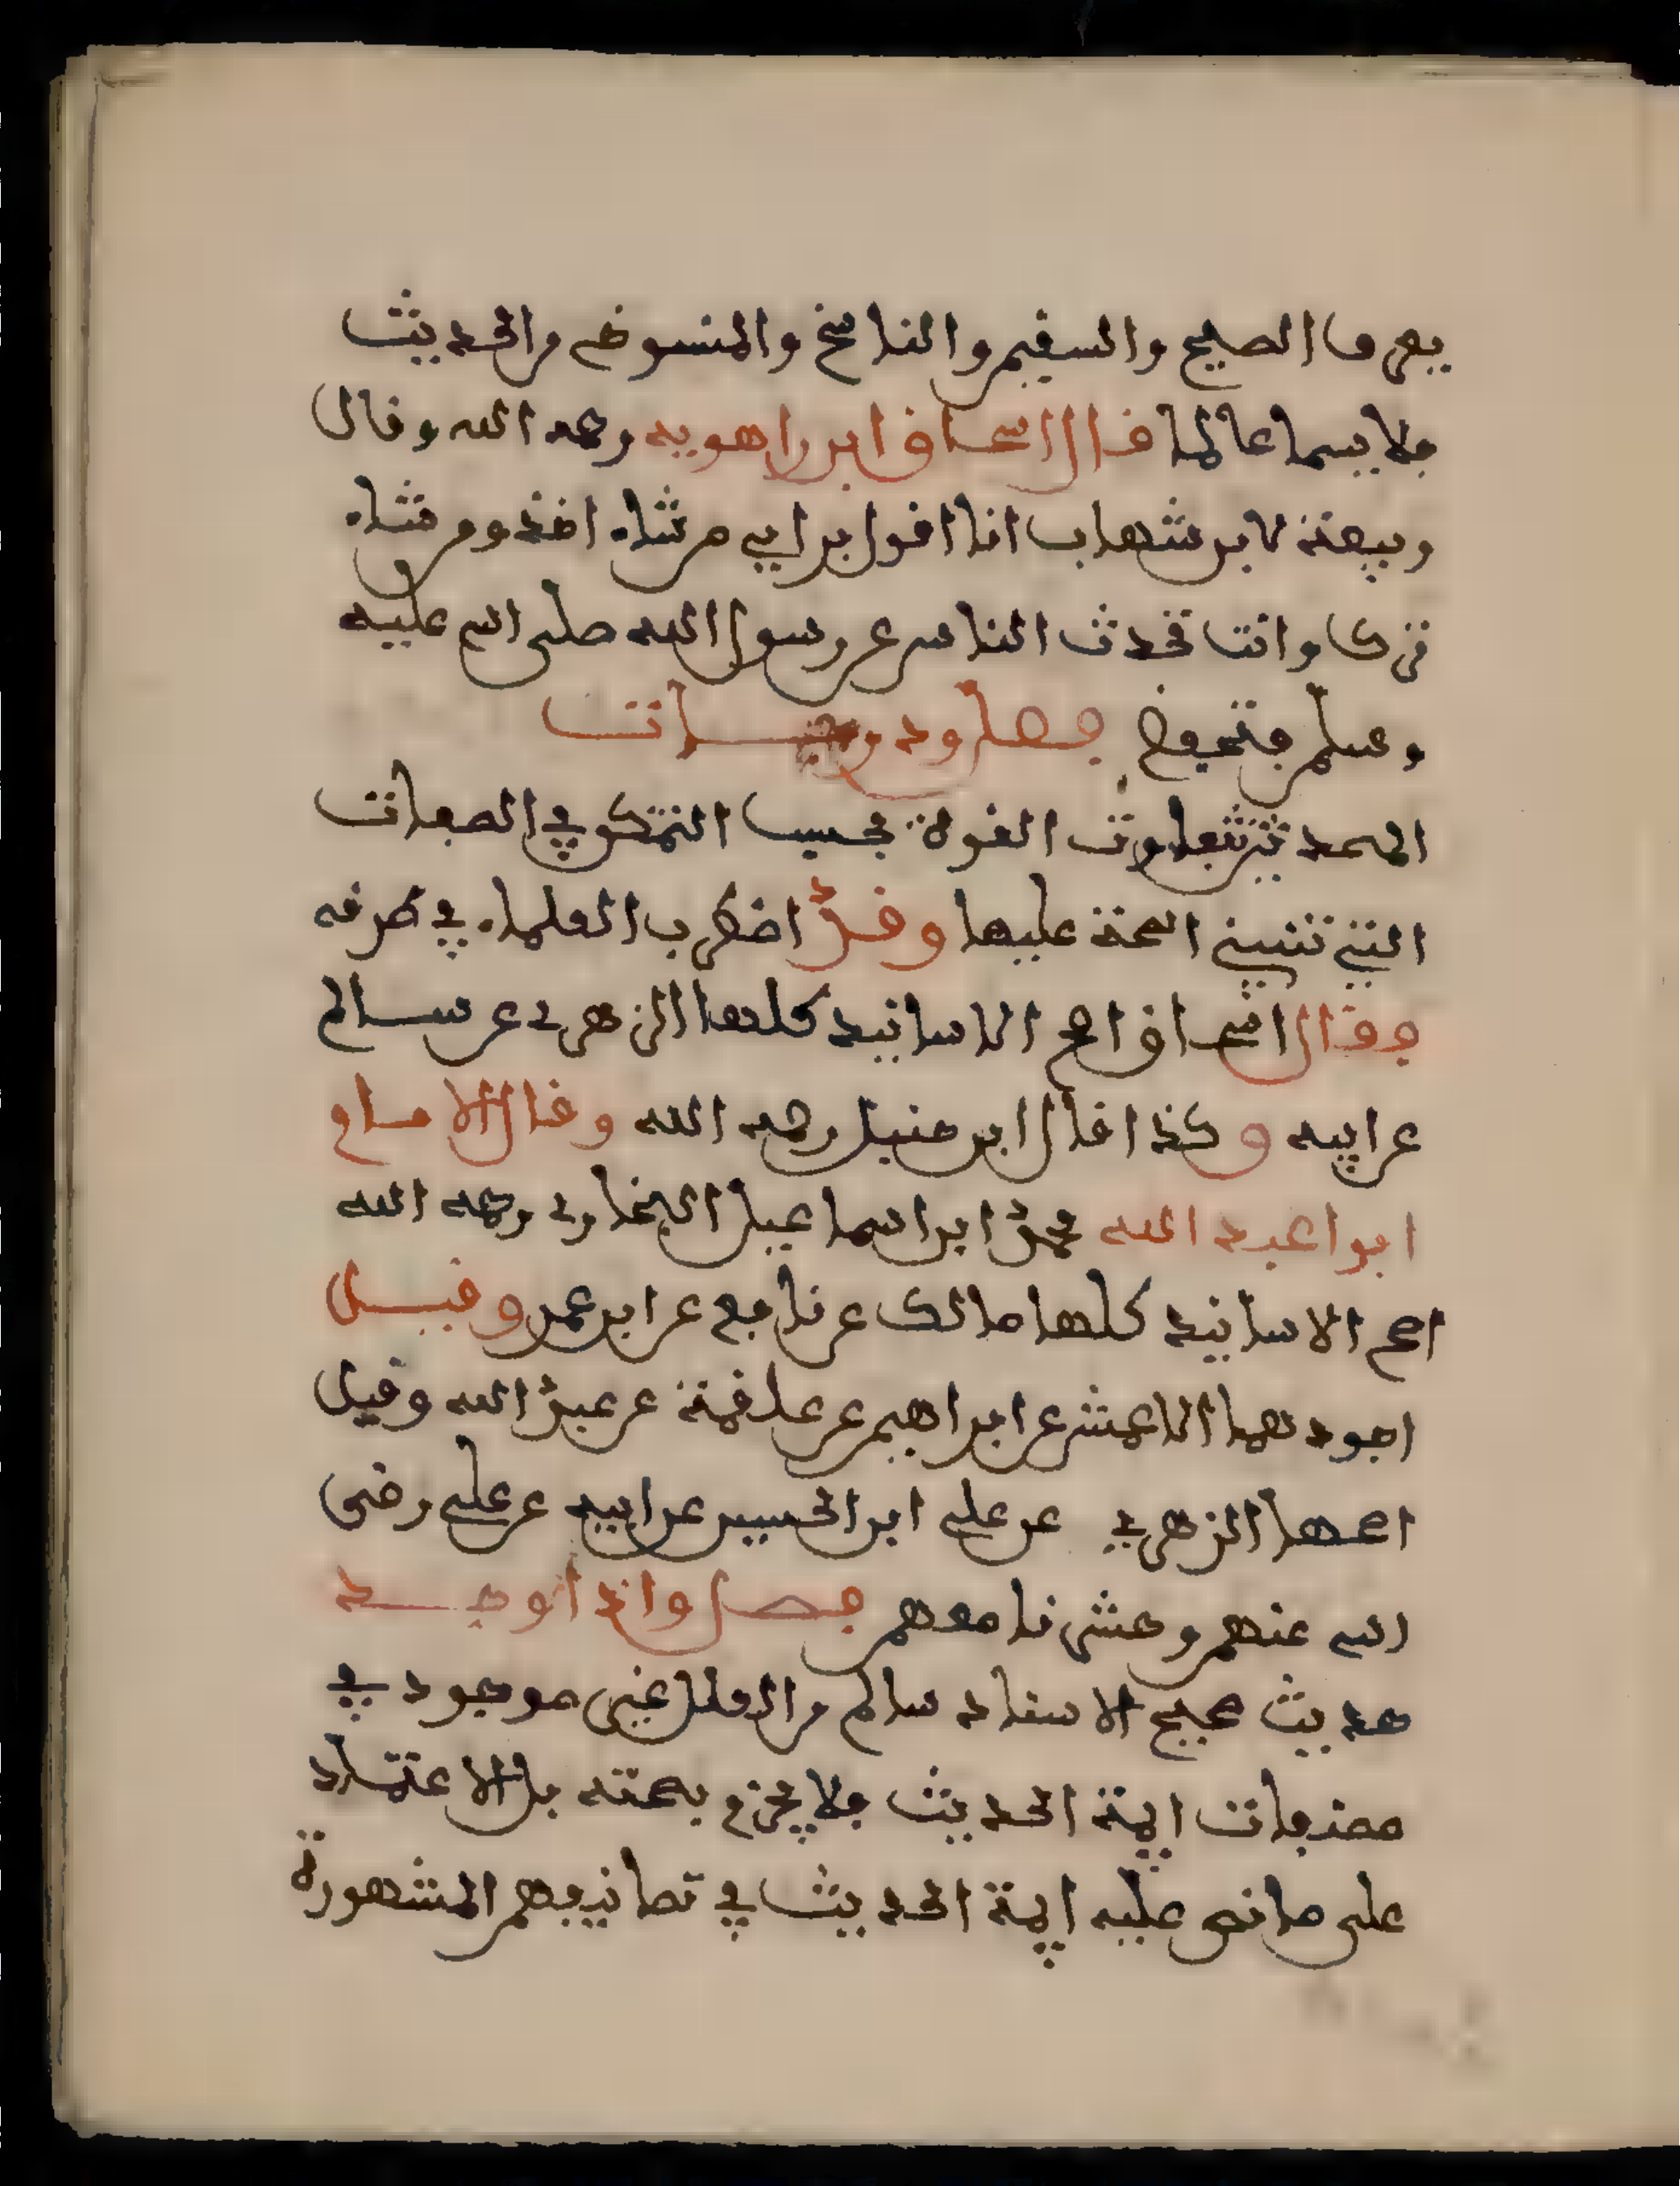 يعرف الصحيح والسقيم والناسخ والمنسوخ من الحديث
فلا يسما عالما قال اسحاق ابن راهويه رحمه الله وقال
ربيعة لابن شهاب انا اقول برايي من شاء اخذه ومن شاء
تركه وانت تحدث الناس عن رسول الله صلى الله عليه
وسلم فتحفظ فصل ودرجات
الصحة تتفاوت القوة بحسب التمكن في الصفات
التي تنبني الصحة عليها وقد اضطرب العلماء في طرقه
فقال اسحاق اصح الاسانيد كلها الزهري عن سالم
عن ابيه وكذا قال ابن حنبل رحمه الله وقال الامام
ابوا عبد الله محمد ابن اسماعيل البخاري رحمه الله
اصح الاسانيد كلها مالك عن نافع عن ابن عمر وقيل
اجودهما الاعمش عن ابراهيم عن علقمة عن عبد الله وقيل
اصحها الزهري عن علي ابن الحسين عن ابيه عن علي رضي
الله عنهم وحشرنا معهم فصل واذا وجد
حديث صحيح الاسناد سالم من العلل غير موجود في
مصنفات ايمة الحديث فلا يجزم بصحته بل الاعتماد
على ما نص عليه ايمة الحديث في تصانيفهم المشهورة